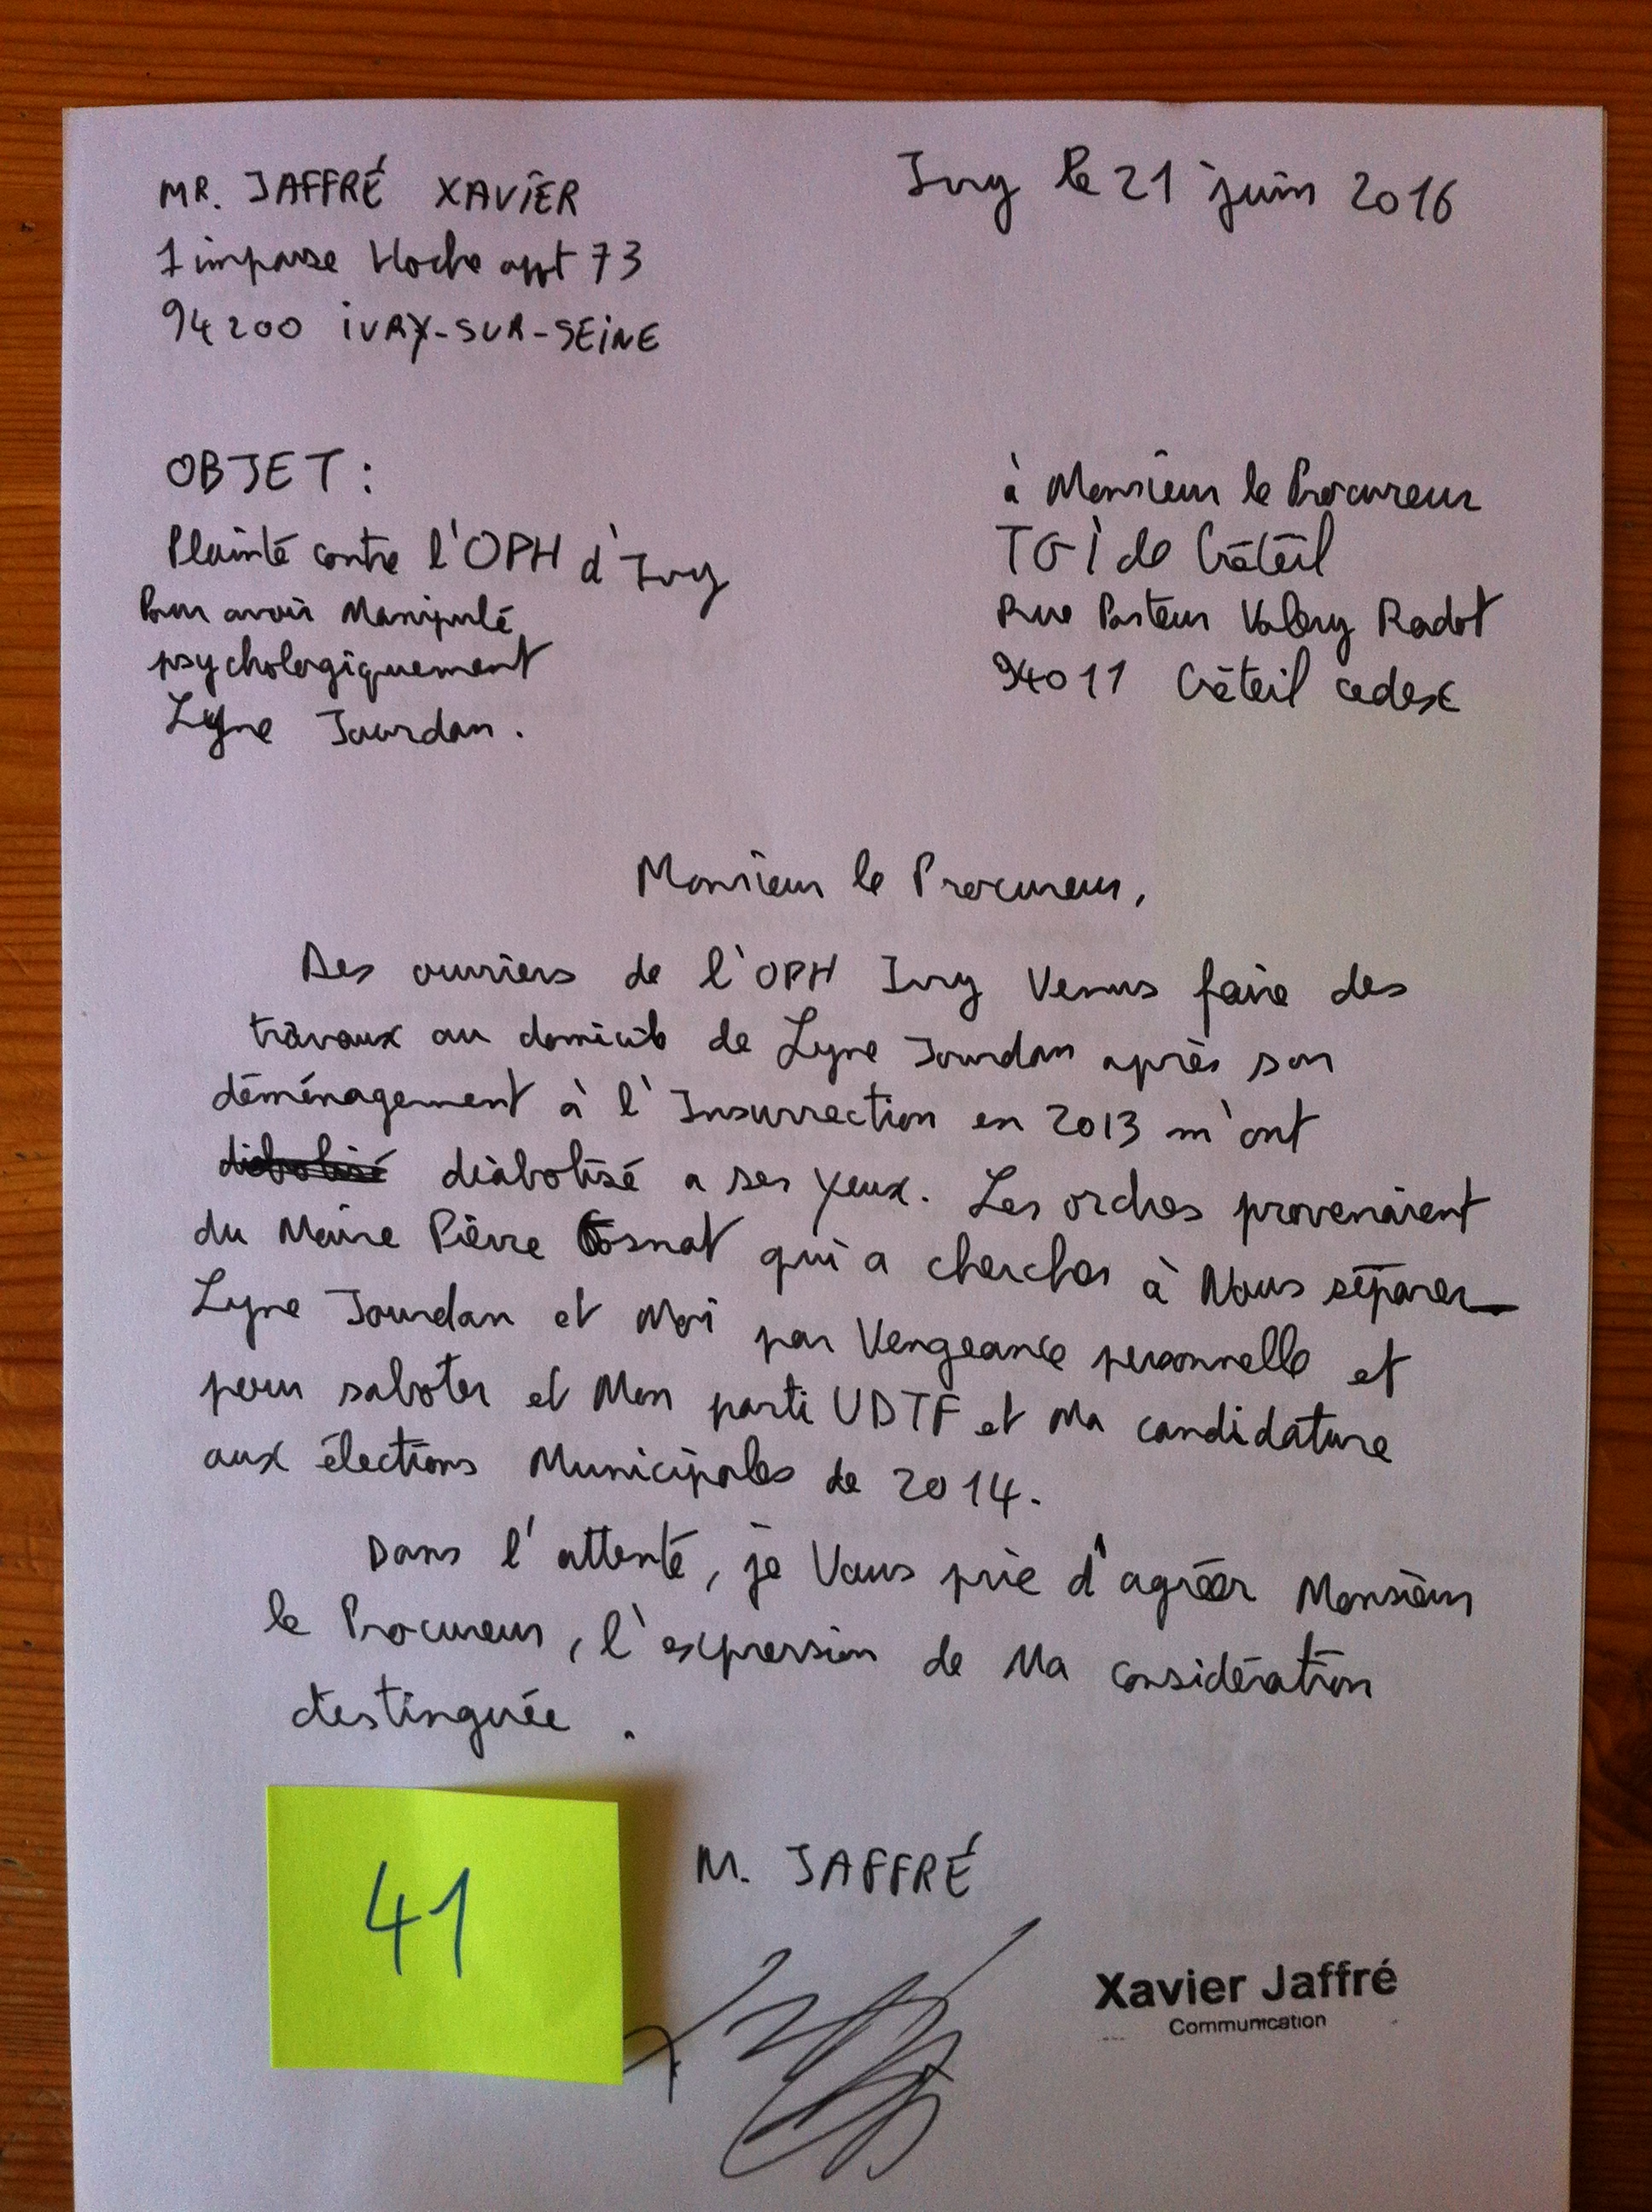 MR. JAFFRÉ XAVIER
1 impasse Hoche appt 73
94200 IVRY-SUR-SEINE
Ivry le 21 juin 2016
OBJET :
Plainte contre l'OPH d'Ivry
Pour avoir Manipulé
psychologiquement
Lyne Jourdan.
à Monsieur le Procureur
TGI de Créteil
Rue Pasteur Valery Radot
94011 Créteil cedex
Monsieur le Procureur,
Des ouvriers de l'OPH Ivry Venus faire des
travaux au domicile de Lyne Jourdan après son
déménagement à l'Insurrection en 2013 m'ont
diabolisé diabolisé a ses yeux. Les ordres provenaient
du Maire Pierre Gosnat qui a chercher à Nous séparer
Lyne Jourdan et Moi par Vengeance personnelle et
pour saboter et Mon parti UDTF et Ma candidature
aux élections Municipales de 2014.
Dans l'attente, je Vous prie d'agréer Monsieur
le Procureur, l'expression de Ma considération
distinguée.
41
M. JAFFRÉ
Xavier Jaffré
Communication